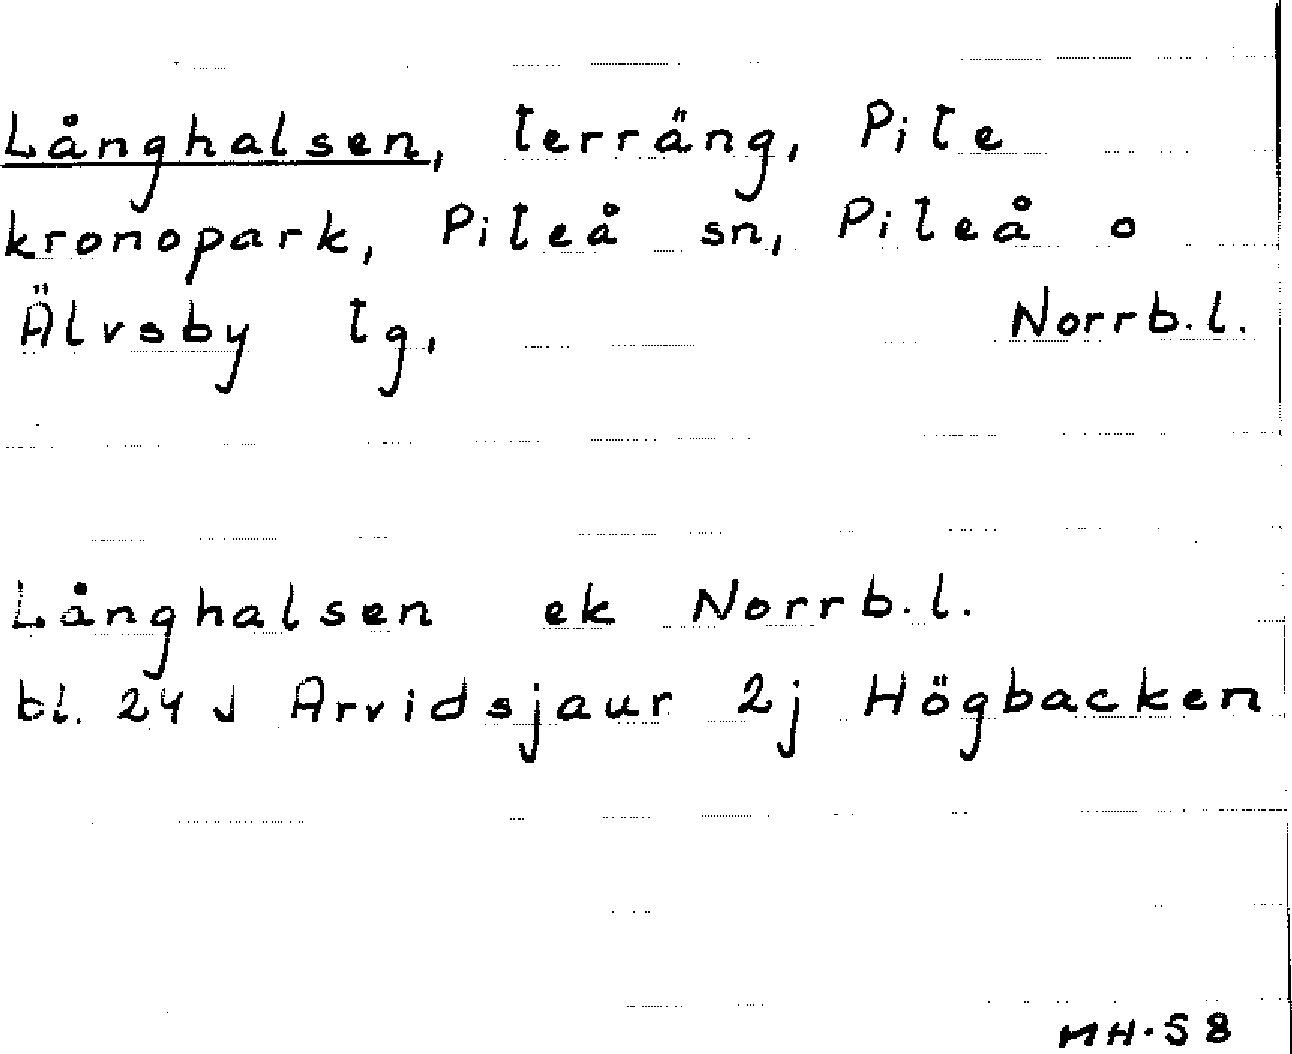 Långhalsen, terräng, Pite
kronopark, Piteå sn, Piteå o
Älvsby tg, Norrb.l.
Långhalsen ek Norrb.l.
bl. 24 J Arvidsjaur 2j Högbacken
MH.58